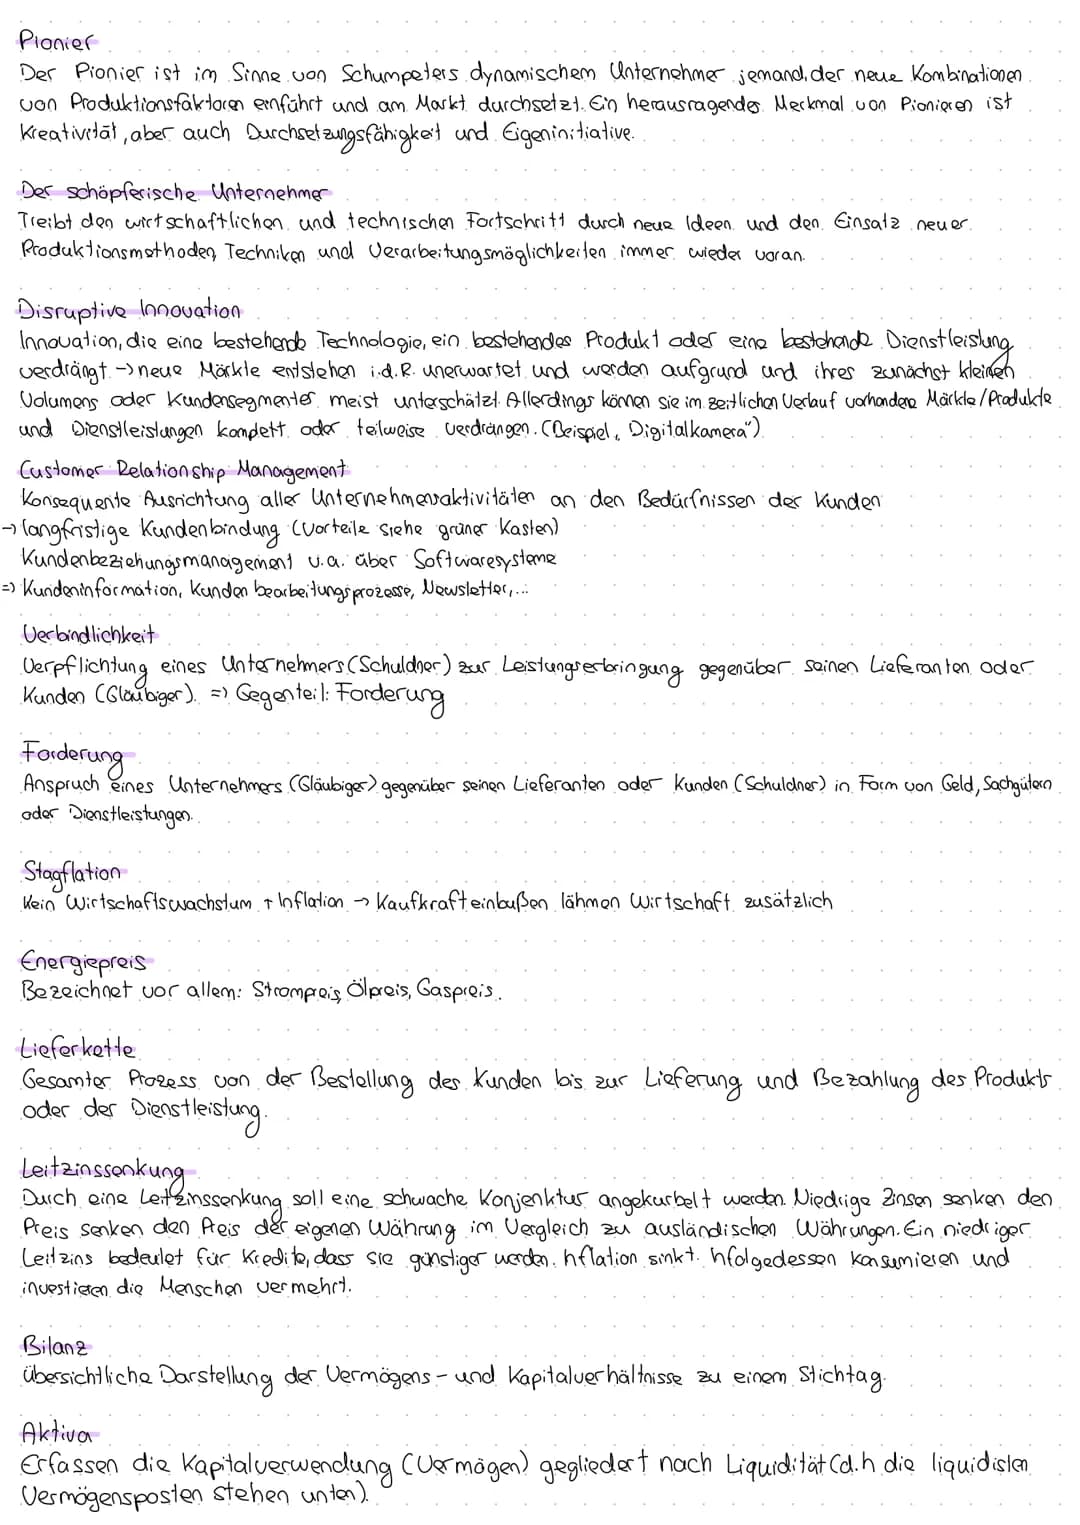 Pionier
Der Pionier ist im Sinne von Schumpeters dynamischem Unternehmer jemand, der neue Kombinationen
von Produktionsfaktoren einführt und am Markt durchsetzt. Ein herausragendes Merkmal von Pionieren ist
Kreativität, aber auch Durchsetzungsfähigkeit und Eigeninitiative.
Der schöpferische Unternehmer
Treibt den wirtschaftlichen und technischen Fortschritt durch neue Ideen und den Einsatz neuer
Produktionsmethoden, Techniken und Verarbeitungsmöglichkeiten immer wieder voran.
Disruptive Innovation
Innovation, die eine bestehende Technologie, ein bestehendes Produkt oder eine bestehende Dienstleistung
verdrängt -> neue Märkte entstehen i.d.R. unerwartet und werden aufgrund und ihres zunächst kleinen
Volumens oder Kundensegmentes meist unterschätzt. Allerdings können sie im zeitlichen Verlauf vorhandene Märkte/Produkte
und Dienstleistungen komplett oder teilweise verdrängen. (Beispiel „Digitalkamera")
Customer Relationship Management
Konsequente Ausrichtung aller Unternehmensaktivitäten an den Bedürfnissen der Kunden
-> langfristige Kundenbindung (Vorteile siehe grüner Kasten)
Kundenbeziehungsmanagement u.a. über Softwaresysteme
=> Kundeninformation, Kundenbearbeitungsprozesse, Newsletter,...
Verbindlichkeit
Verpflichtung eines Unternehmers (Schuldner) zur Leistungserbringung gegenüber seinen Lieferanten oder
Kunden (Gläubiger). => Gegenteil: Forderung
Forderung
Anspruch eines Unternehmers (Gläubiger) gegenüber seinen Lieferanten oder Kunden (Schuldner) in Form von Geld, Sachgütern
oder Dienstleistungen.
Stagflation
Kein Wirtschaftswachstum + Inflation -> Kaufkrafteinbußen lähmen Wirtschaft zusätzlich
Energiepreis
Bezeichnet vor allem: Strompreis, Ölpreis, Gaspreis.
Lieferkette
Gesamter Prozess von der Bestellung des Kunden bis zur Lieferung und Bezahlung des Produkts
oder der Dienstleistung.
Leitzinssenkung
Durch eine Leitzinssenkung soll eine schwache Konjenktur angekurbelt werden. Niedrige Zinsen senken den
Preis senken den Preis der eigenen Währung im Vergleich zu ausländischen Währungen. Ein niedriger
Leitzins bedeutet für Kredite, dass sie günstiger werden. Inflation sinkt. Infolgedessen konsumieren und
investieren die Menschen vermehrt.
Bilanz
Übersichtliche Darstellung der Vermögens- und Kapitalverhältnisse zu einem Stichtag.
Aktiva
Erfassen die Kapitalverwendung (Vermögen) gegliedert nach Liquidität (d.h die liquidisten
Vermögensposten stehen unten).